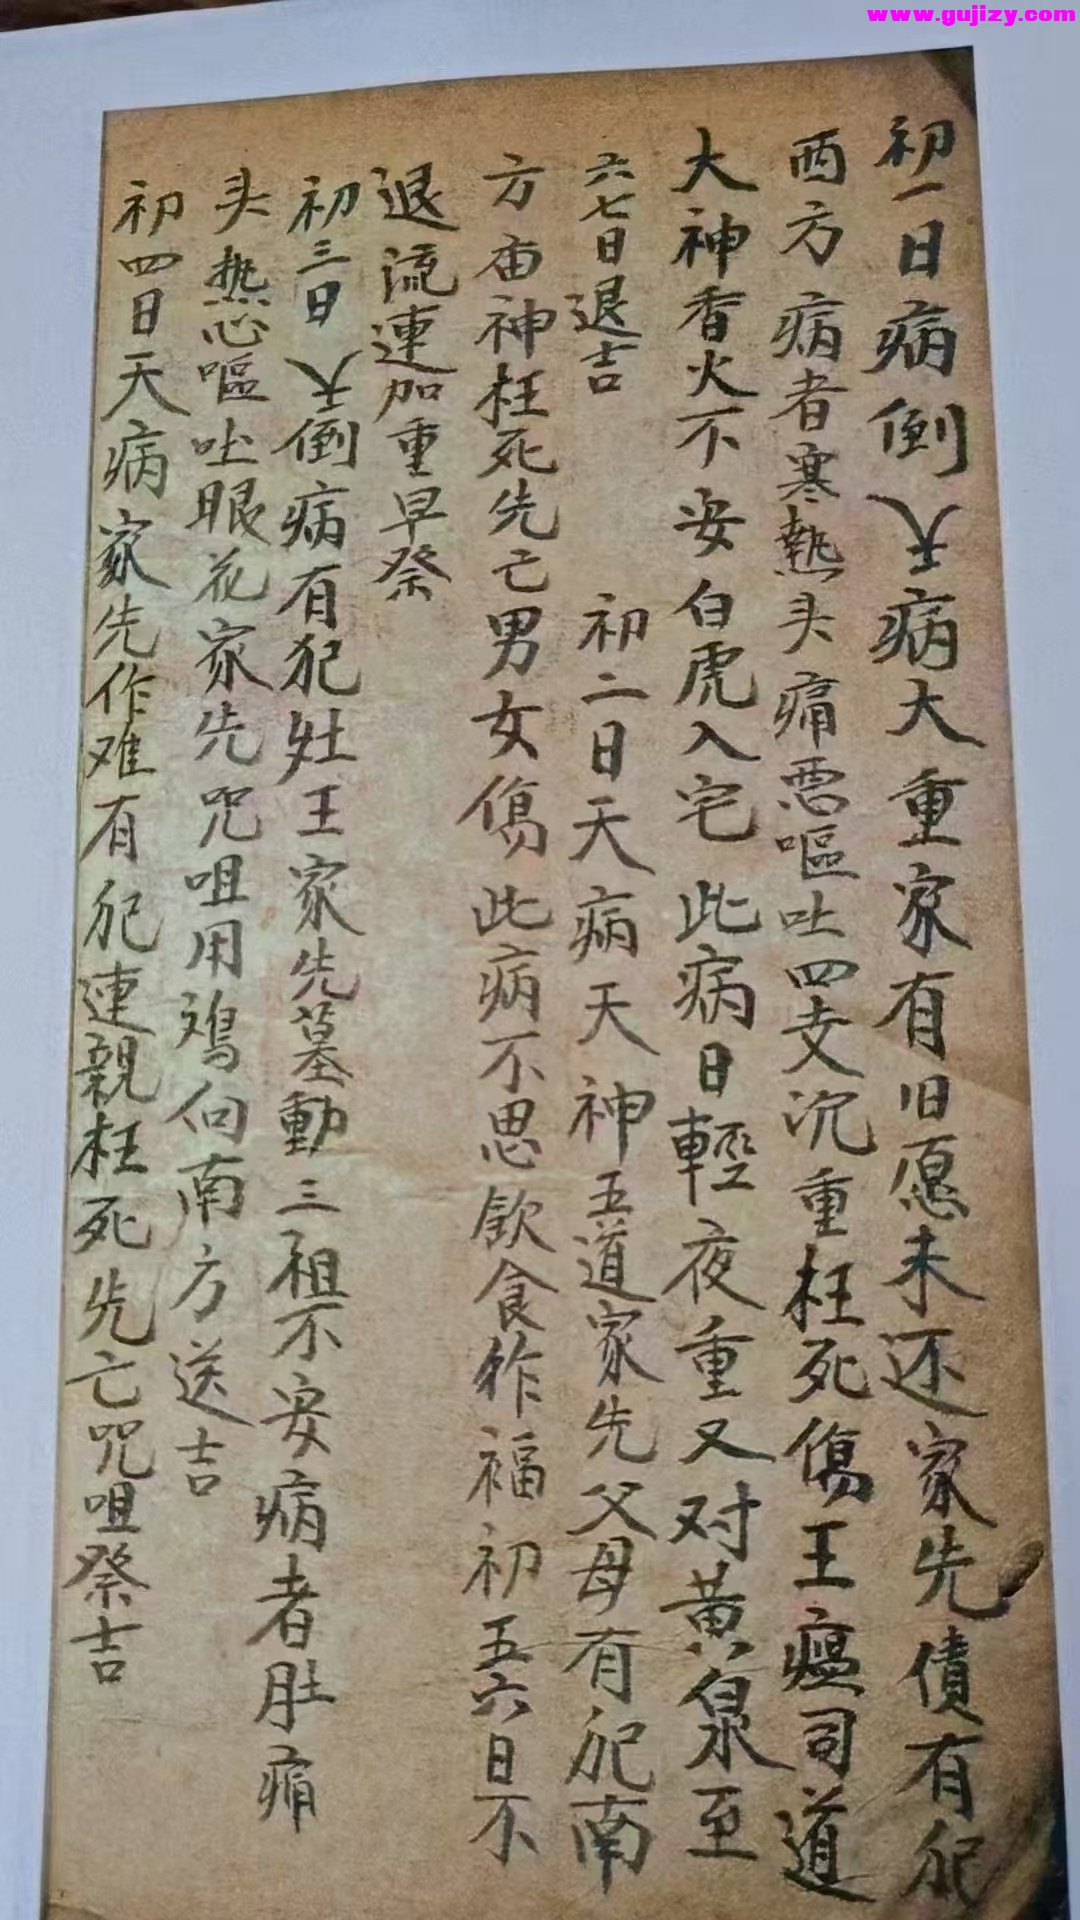 www.gujizy.com
初一日病倒天病大重家有旧愿未还家先債有犯
西方病者寒熱头痛恶嘔吐四支沉重枉死傷王瘟司道
大神香火不安白虎入宅此病日輕夜重又对黄泉至
六七日退吉
初二日天病天神五道家先父母有犯南
方庙神枉死先亡男女傷此病不思飲食作福初五六日不
退流連加重早祭
初三日倒病有犯灶王家先墓動三祖不安病者肚痛
头热心嘔吐眼花家先咒咀用鴉向南方送吉
初四日天病家先作难有犯連親枉死先亡咒咀祭吉